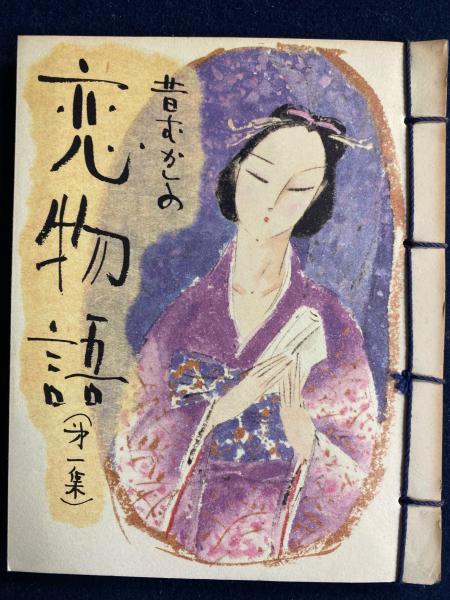 昔むかしの
恋物語
(㐧一集)